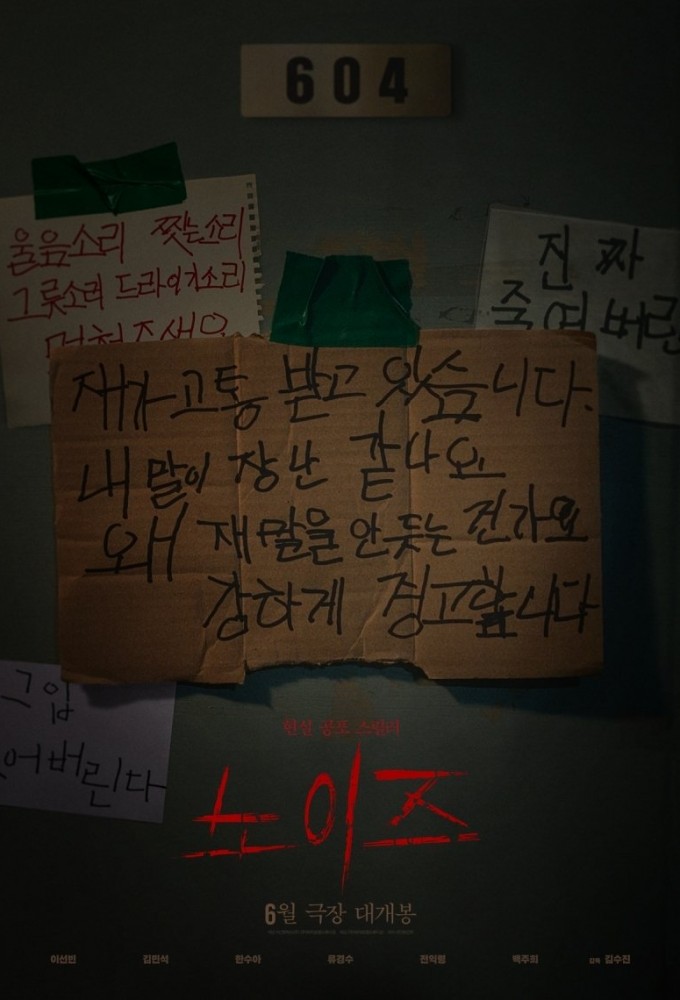 604
울음소리
그릇소리 드라이기소리
진짜
죽여버린
재가 고통 받고 있습니다.
내 말이 장난 같나요
왜 재 말을 안 듣는 건가요
강하게 경고합니다
그 입
어버린다
현실 공포 스릴러
노이즈
6월 극장 대개봉
이선빈 김민석 한수아 류경수 전익령 백주희 감독 김수진